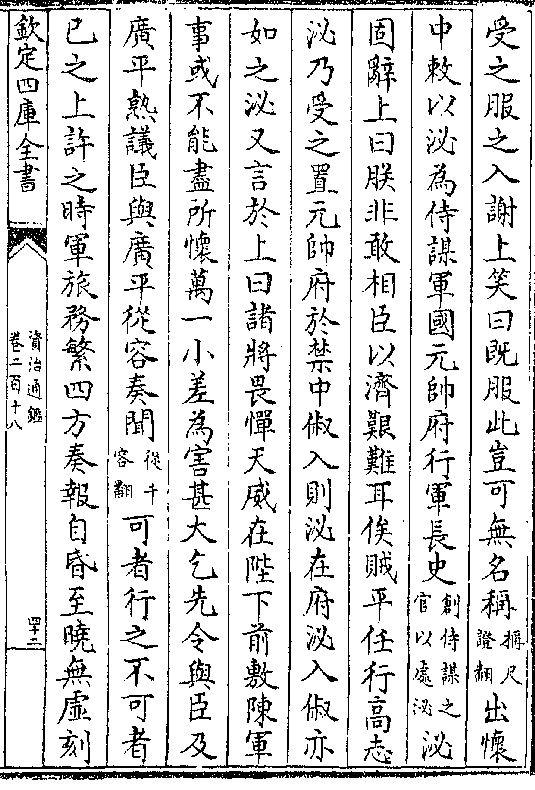 受之服之入謝上笑曰既服此豈可無名稱稱尺證翻出懷
中敕以泌為侍謀軍國元帥府行軍長史創侍謀之官以處泌泌
固辭上曰朕非敢相臣以濟艱難耳俟賊平任行高志
泌乃受之置元帥府於禁中俶入則泌在府泌入俶亦
如之泌又言於上曰諸將畏憚天威在陛下前敷陳軍
事或不能盡所懷萬一小差為害甚大乞先令與臣及
廣平熟議臣與廣平從容奏聞從千容翻可者行之不可者
已之上許之時軍旅務繁四方奏報自昏至曉無虛刻
欽定四庫全書
資治通鑑
卷二百十八
四十二